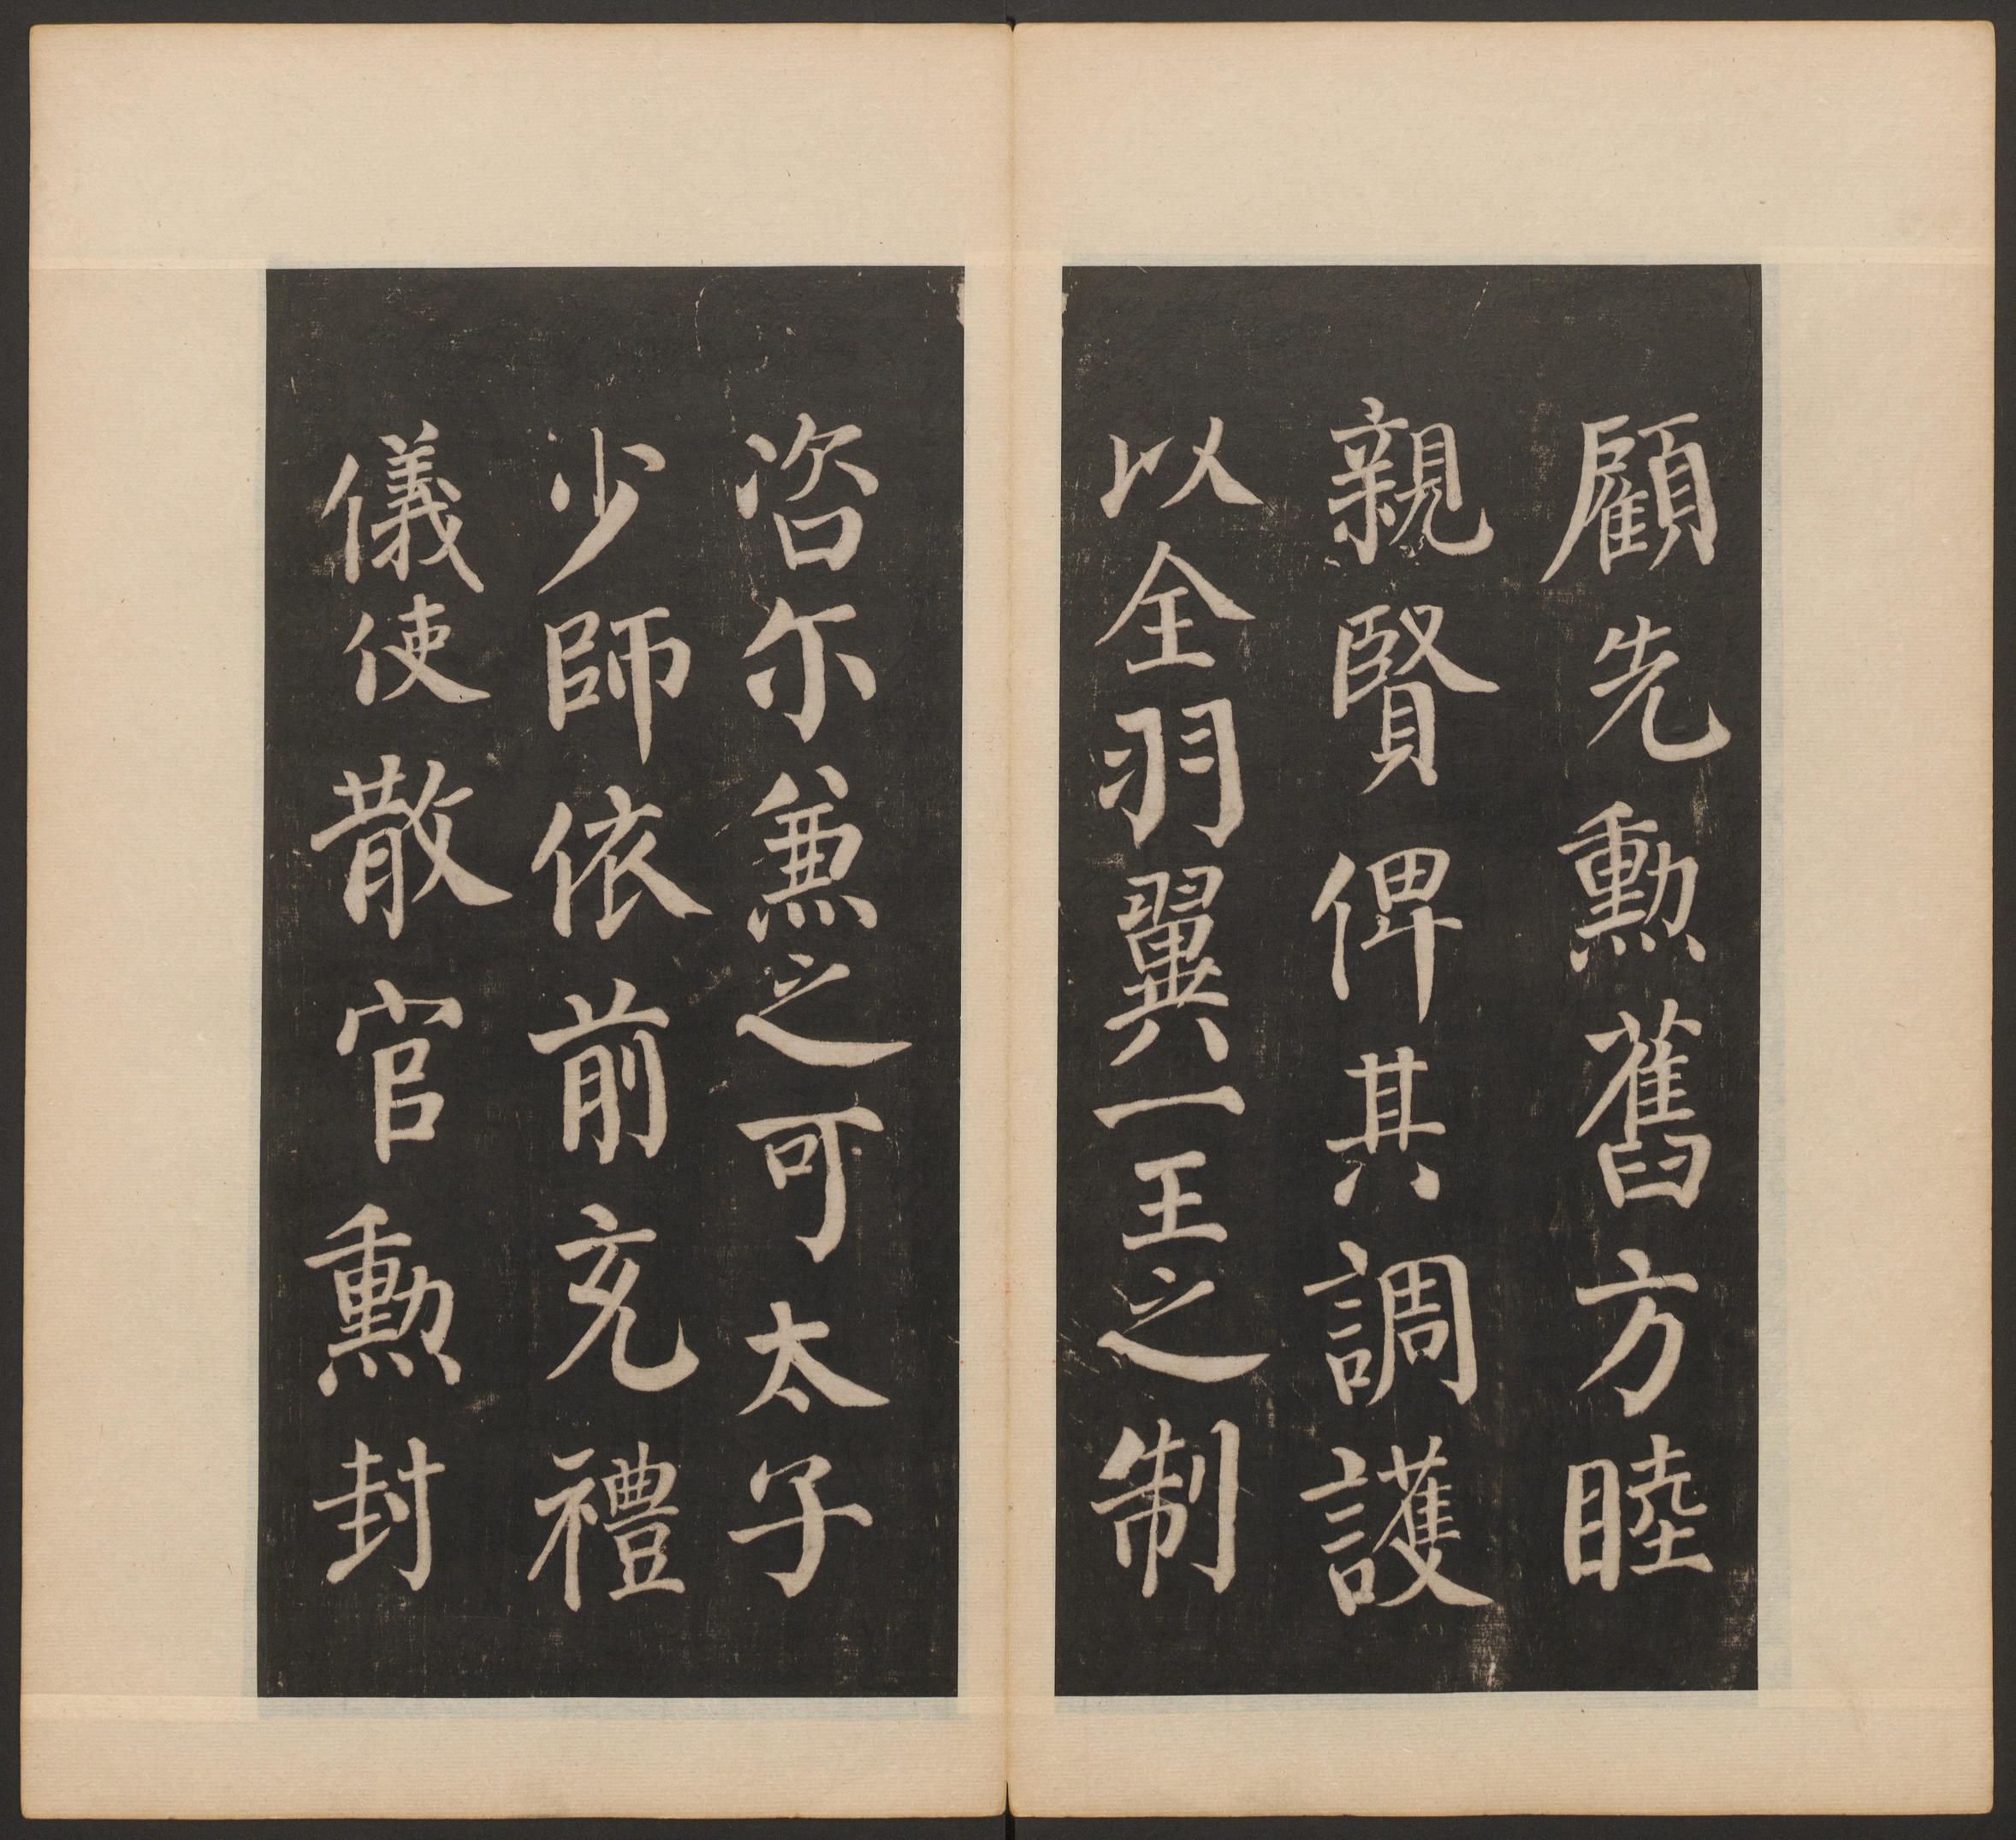 顧先勲舊方睦
親賢俾其調護
以全羽翼一王之制
咨尓兼之可太子
少師依前充禮
儀使散官勲封